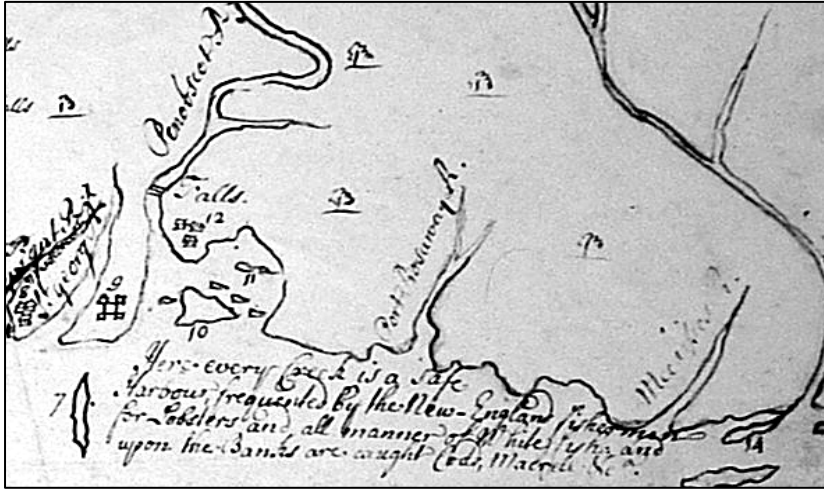 Penobscot R.
Falls.
12
St. georg R.
9
11
10
7
Port Rosaway R.
Here every Creek is a safe
Harbour, frequented by the New-England fishermen
for Lobsters and all manner of White fish, and
upon the Banks are caught Cods, Macrill &ca.
14